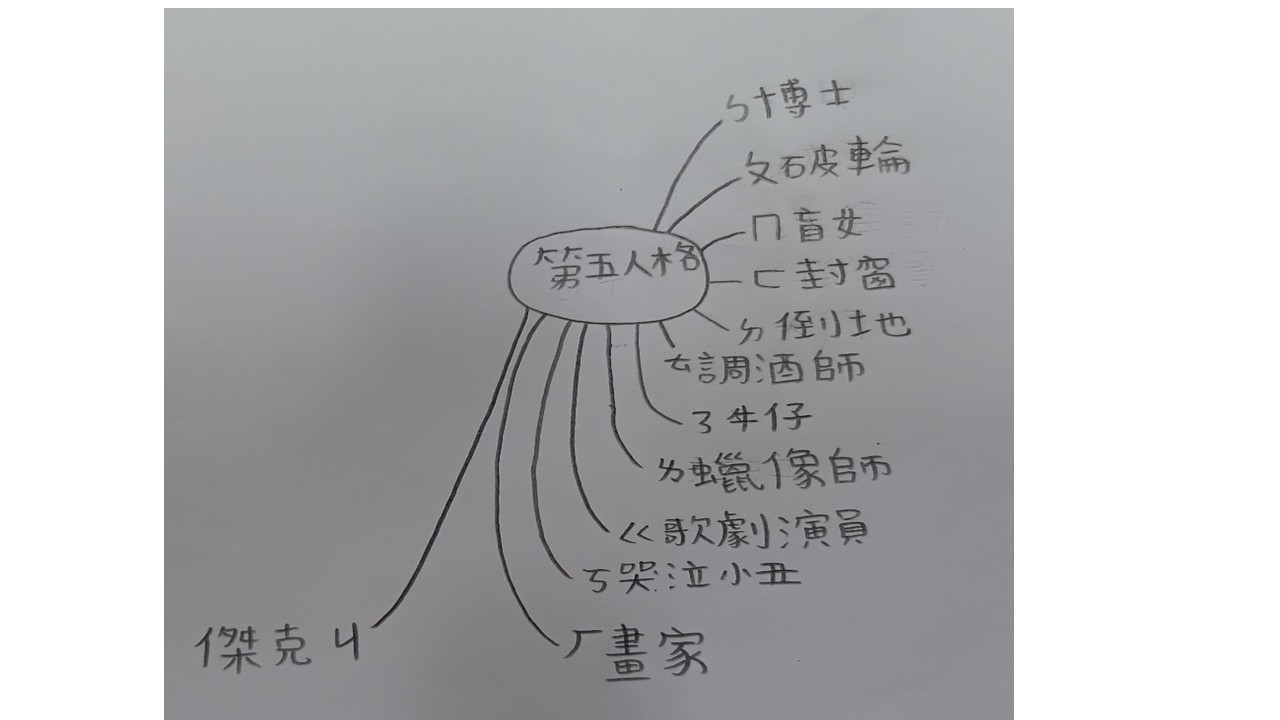 第五人格
ㄅ博士
ㄆ破輪
ㄇ盲女
ㄈ封窗
ㄉ倒地
ㄊ調酒師
ㄋ牛仔
ㄌ蠟像師
ㄍ歌劇演員
ㄎ哭泣小丑
ㄏ畫家
傑克ㄐ